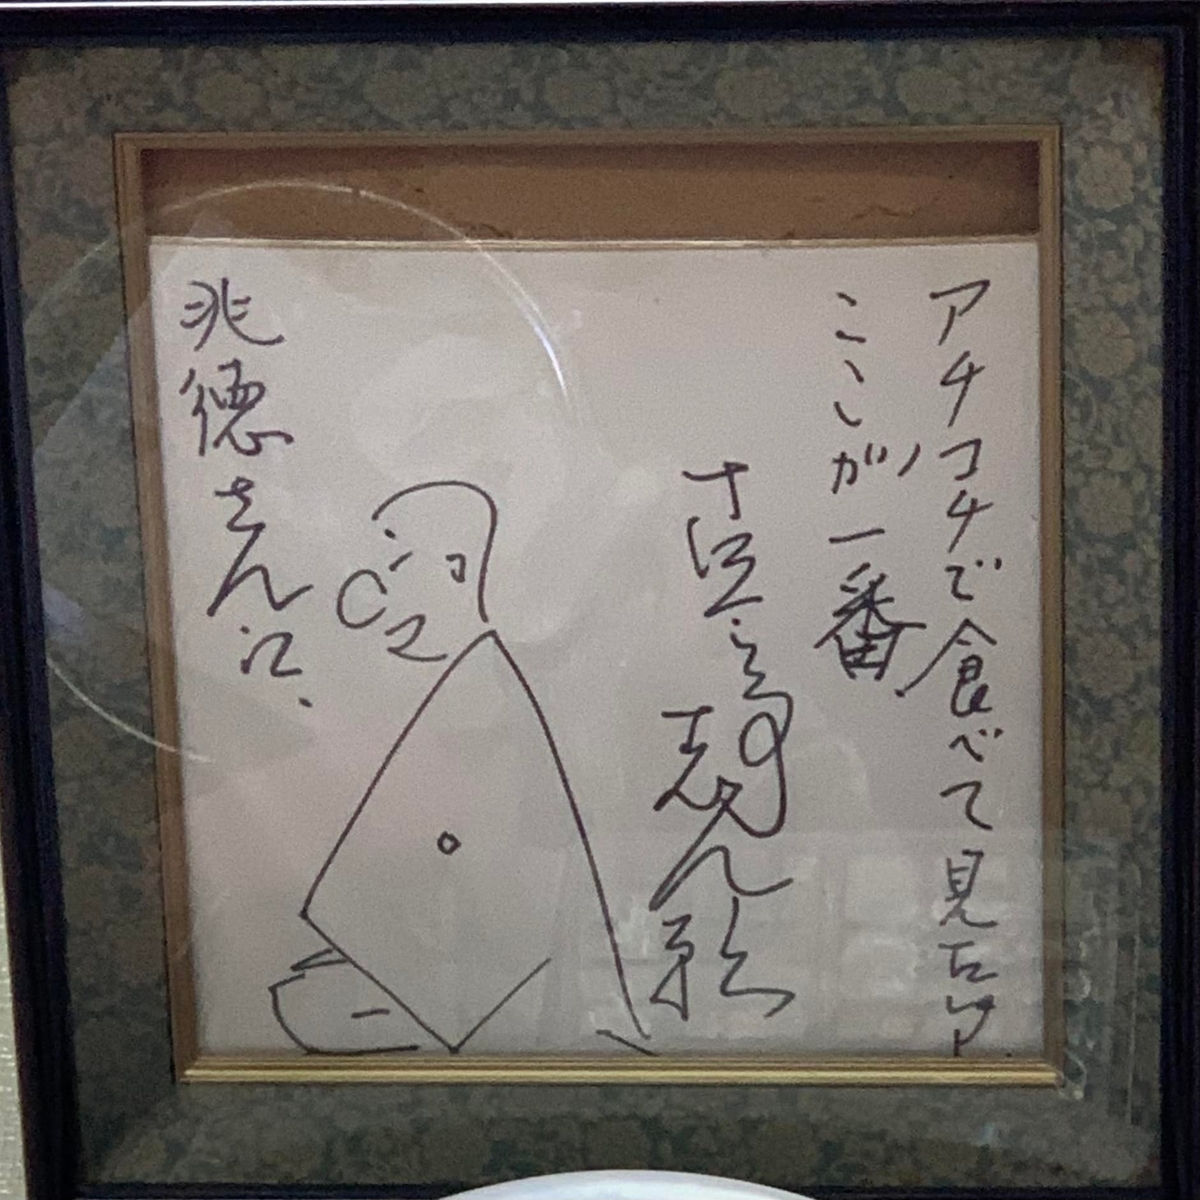 アチコチで食べて見たが
ここが一番
古今亭志ん駒
兆徳さん江